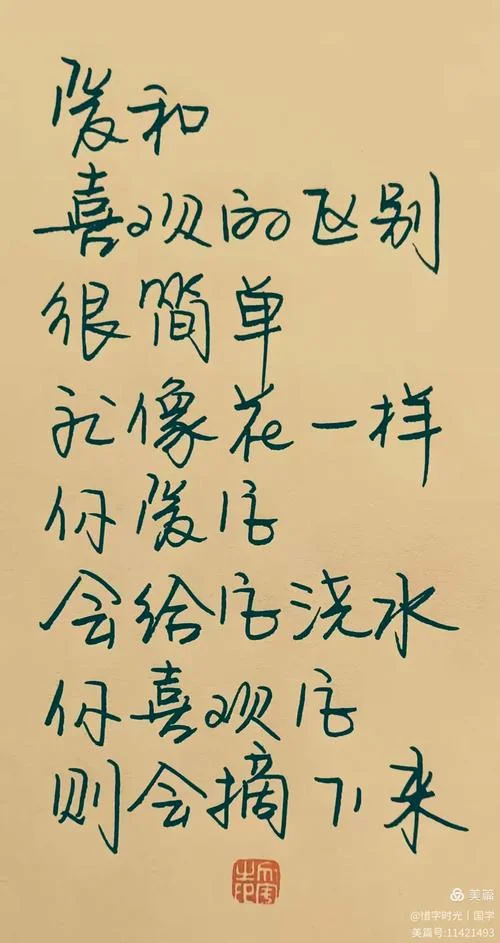 爱和
喜欢的区别
很简单
就像花一样
你爱它
会给它浇水
你喜欢它
则会摘下来
美篇
@惜字时光丨国学
美篇号:11421493